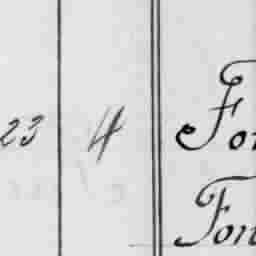 23 4 For
Font